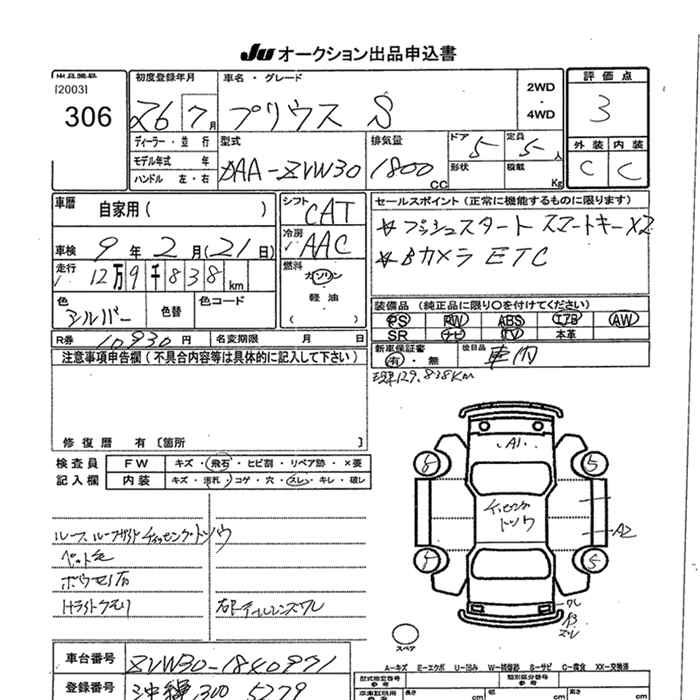 Ju オークション出品申込書
[2003]
306
初度登録年月
26 7月
車名・グレード
プリウス S
2WD
・
4WD
評価点
3
外装 内装
C C
ディーラー・並行
モデル年式 年
ハンドル 左・右
型式
DAA-ZVW30
排気量
1800 CC
ドア
5
形状
定員
5人
積載
Kg
車歴
自家用( )
車検 9年2月(21日)
走行 12万9千838km
色
シルバー
色替
色コード
シフト
CAT
冷房
AAC
燃料
ガソリン
・
軽油
( )
セールスポイント(正常に機能するものに限ります)
☆プッシュスタート スマートキーX2
☆Bカメラ ETC
装備品(純正品に限り○を付けてください)
PS PW ABS エアB AW
SR ナビ TV 本革
R券 10930円
名変期限 月 日
新車保証書
有・無
後日品
車内
現車129.838Km
注意事項申告欄(不具合内容等は具体的に記入して下さい)
修復歴 有〔箇所 〕
検査員
記入欄
FW キズ・飛石・ヒビ割・リペア跡・×要
内装 キズ・汚れ・コゲ・穴・スレ・キレ・破レ
ペット毛
Hライトクモリ
A1
チッピング
トソウ
A2
スペア
A-キズ E-エクボ U-凹み W-補修跡 S-サビ C-腐食 XX-交換済
車台番号 ZVW30-1840971
登録番号 沖縄 300 5279
型式指定番号
参考
類別区分番号
参考
長さ cm
幅 cm
高さ cm